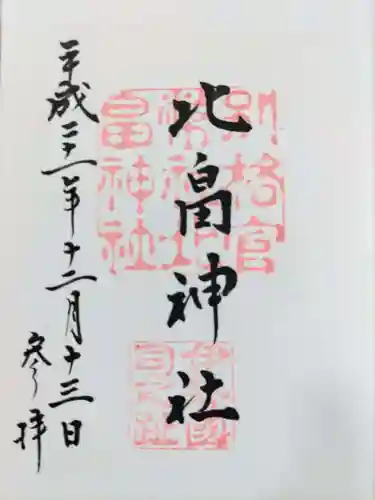 北畠神社
平成二十一年十二月十三日
参拝
別格官
幣社北
畠神社